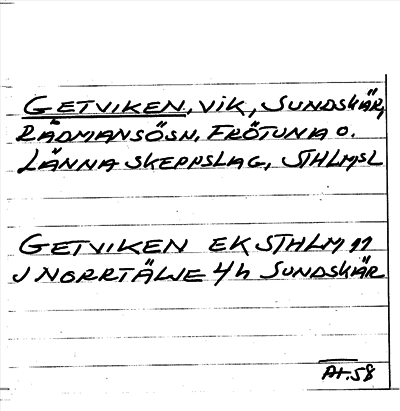 GETVIKEN, VIK, SUNDSKÄR,
RÅDMANSÖSN, FRÖTUNA O.
LÄNNA SKEPPSLAG, STHLMSL
GETVIKEN EK STHLM 11
J NORRTÄLJE 4h SUNDSKÄR
AT.58